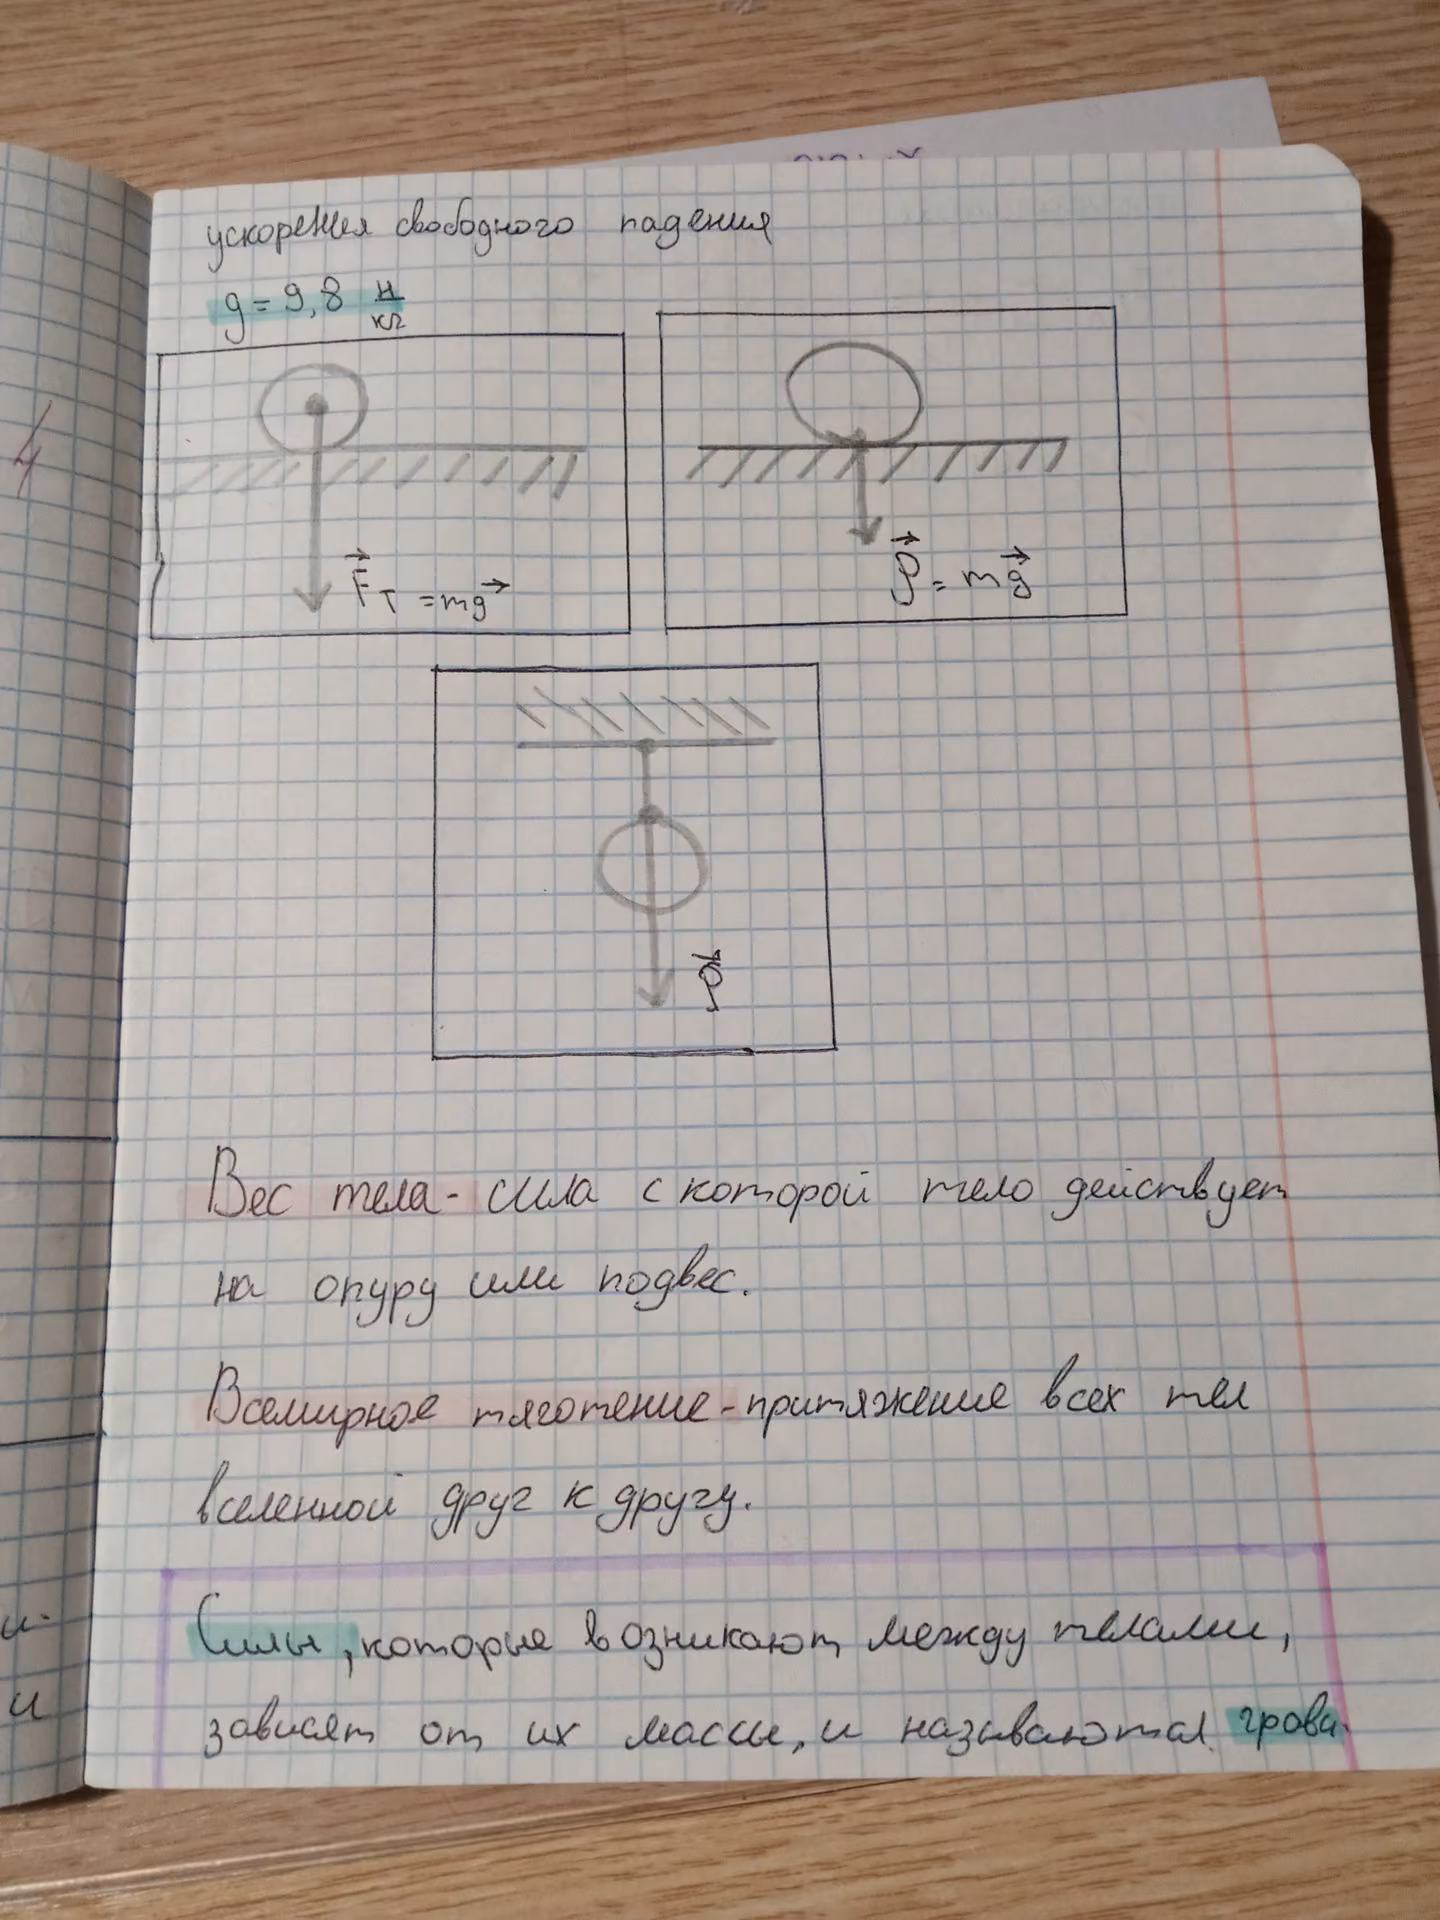 ускорения свободного падения
g = 9,8 н/кг
F⃗т = mg⃗
P⃗ = mg⃗
P⃗
Вес тела - сила с которой тело действует
на опуру или подвес.
Всемирное тяготение - притяжение всех тел
вселенной друг к другу.
Силы, которые возникают между телами,
зависят от их массы, и называются грави-
4
и-
и